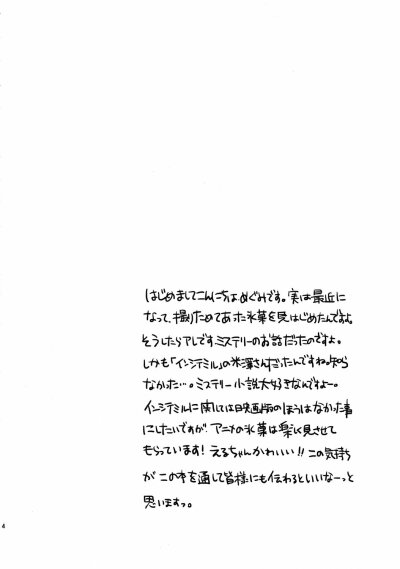 はじめましてこんにちはめぐみです。実は最近に
なって、撮りためてあった氷菓を見はじめたんですよ。
そうしたらアレです。ミステリーのお話だったのですよ。
しかも「インシテミル」の米澤さんだったんですね。知ら
なかった…。ミステリー小説大好きなんですよー。
インシテミルに関しては映画版のほうはなかった事
にしたいですが、アニメの氷菓は楽しく見させて
もらっています！えるちゃんかわいい!!この気持ち
がこの本を通して皆様にも伝わるといいなーっと
思いますっ。
4